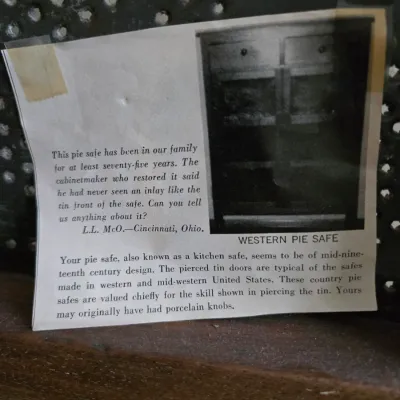 This pie safe has been in our family
for at least seventy-five years. The
cabinetmaker who restored it said
he had never seen an inlay like the
tin front of the safe. Can you tell
us anything about it?
L.L. McO.—Cincinnati, Ohio.
WESTERN PIE SAFE
Your pie safe, also known as a kitchen safe, seems to be of mid-nine-
teenth century design. The pierced tin doors are typical of the safes
made in western and mid-western United States. These country pie
safes are valued chiefly for the skill shown in piercing the tin. Yours
may originally have had porcelain knobs.